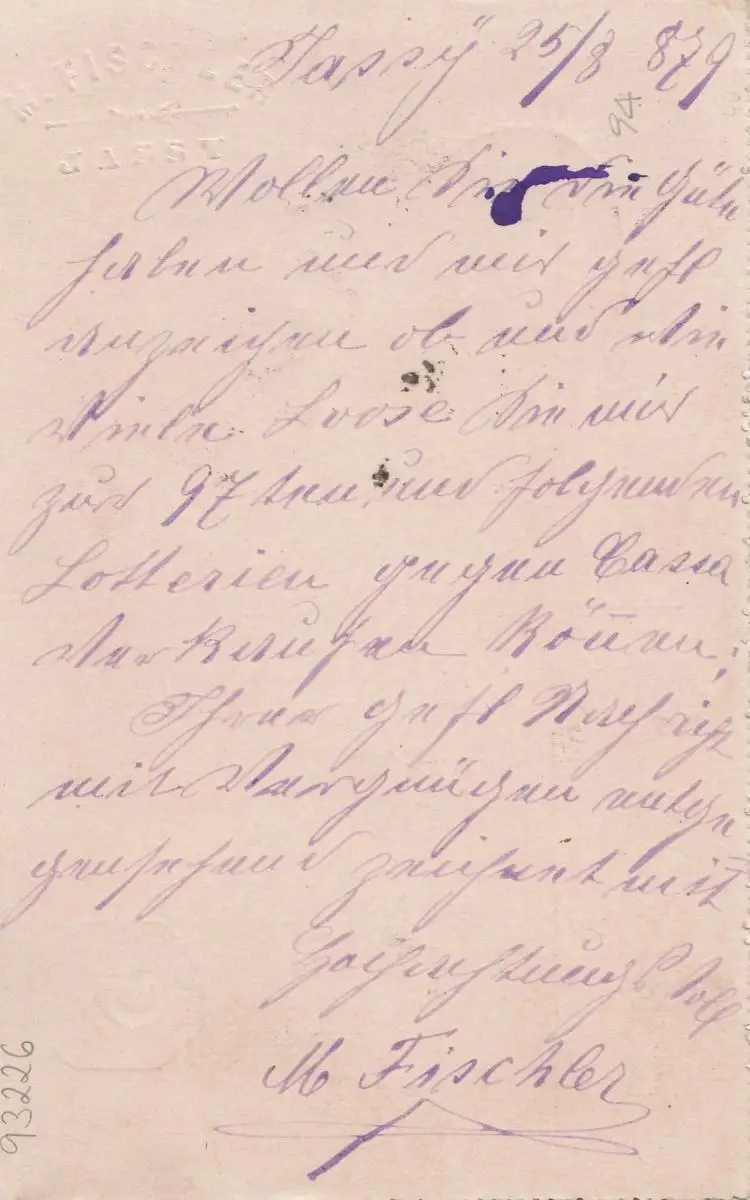 M. FISCHLER
JASSY
Jassÿ 25/8 879
94
Wollen Sie die Güte
haben und mir gefl
anzeigen ob und wie
viele Loose Sie mir
zur 97ten und folgenden
Lotterien gegen Cassa
verkaufen können;
Ihrer gefl Nachricht
mit Vergnügen entge
gensehend zeichnet mit
Hochachtungsvoll
M Fischler
93226